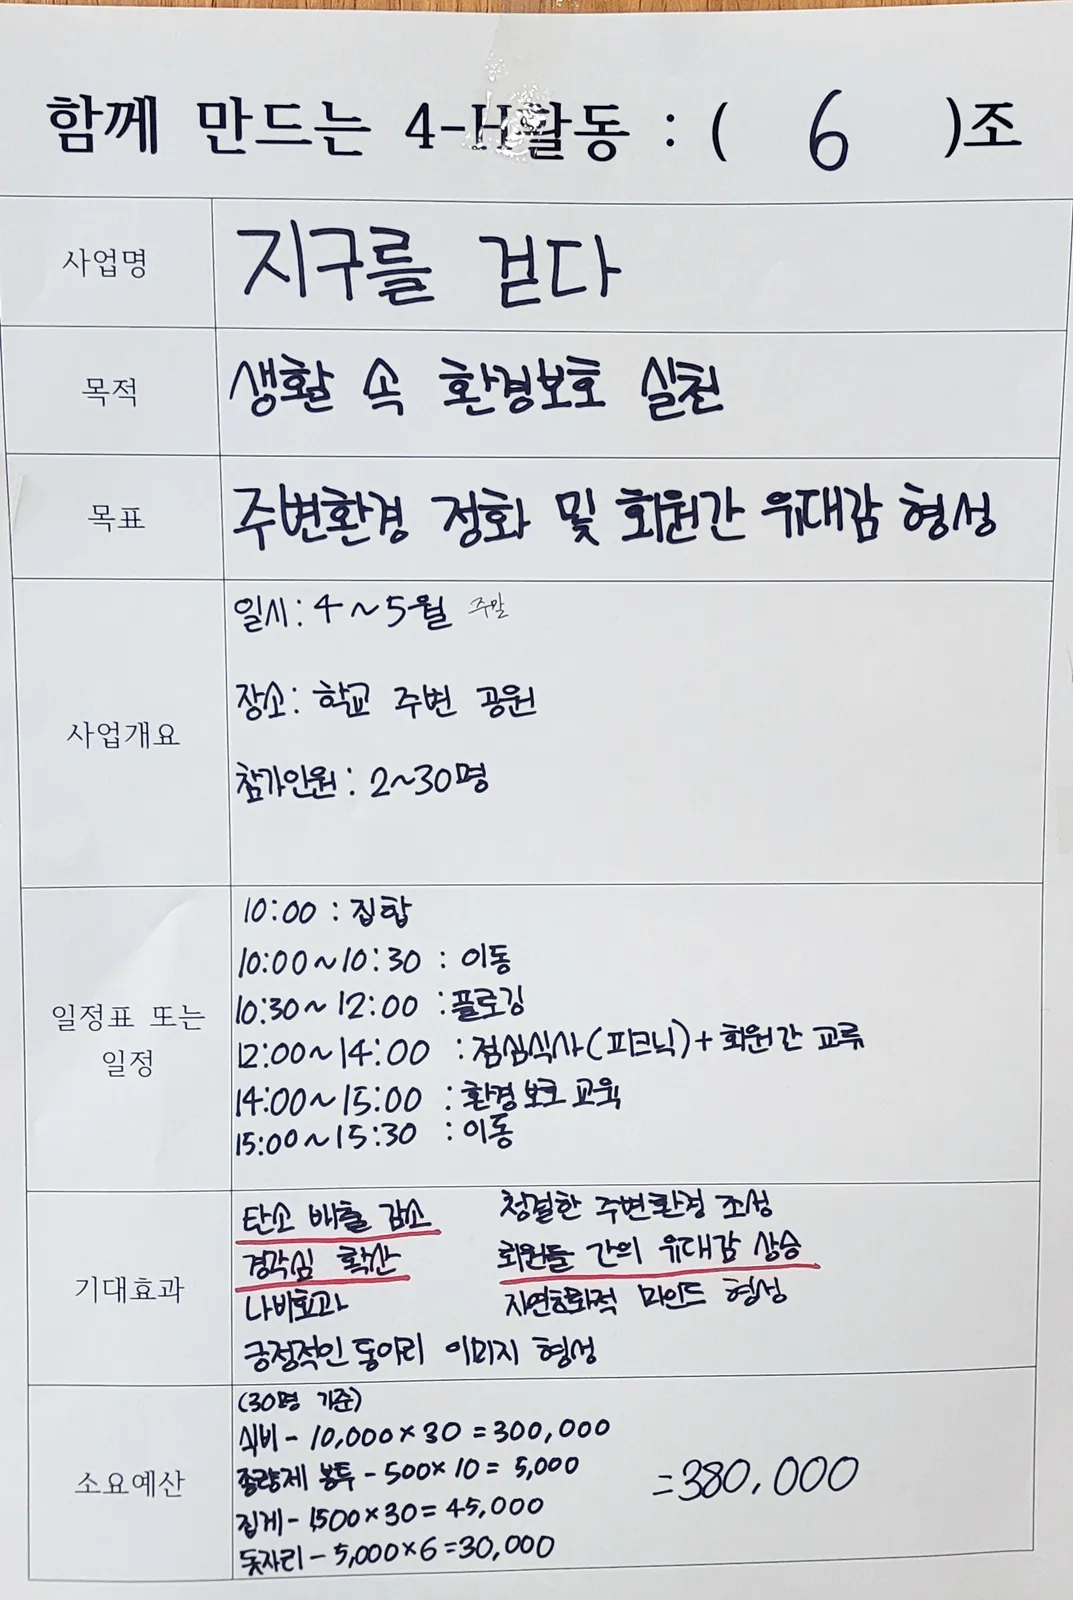 함께 만드는 4-H활동 : ( 6 )조
사업명
지구를 걷다
목적
생활 속 환경보호 실천
목표
주변환경 정화 및 회원간 유대감 형성
사업개요
일시: 4~5월 주말
장소: 학교 주변 공원
참가인원: 2~30명
일정표 또는
일정
10:00 : 집합
10:00~10:30 : 이동
10:30~12:00 : 플로깅
12:00~14:00 : 점심식사(피크닉)+회원간 교류
14:00~15:00 : 환경보호 교육
15:00~15:30 : 이동
기대효과
탄소 배출 감소 청결한 주변환경 조성
경각심 확산 회원들 간의 유대감 상승
나비효과 자연친화적 마인드 형성
긍정적인 동아리 이미지 형성
소요예산
(30명 기준)
식비 - 10,000×30 = 300,000
종량제 봉투 - 500×10 = 5,000
집게 - 1500×30 = 45,000
돗자리 - 5,000×6 = 30,000
=380,000